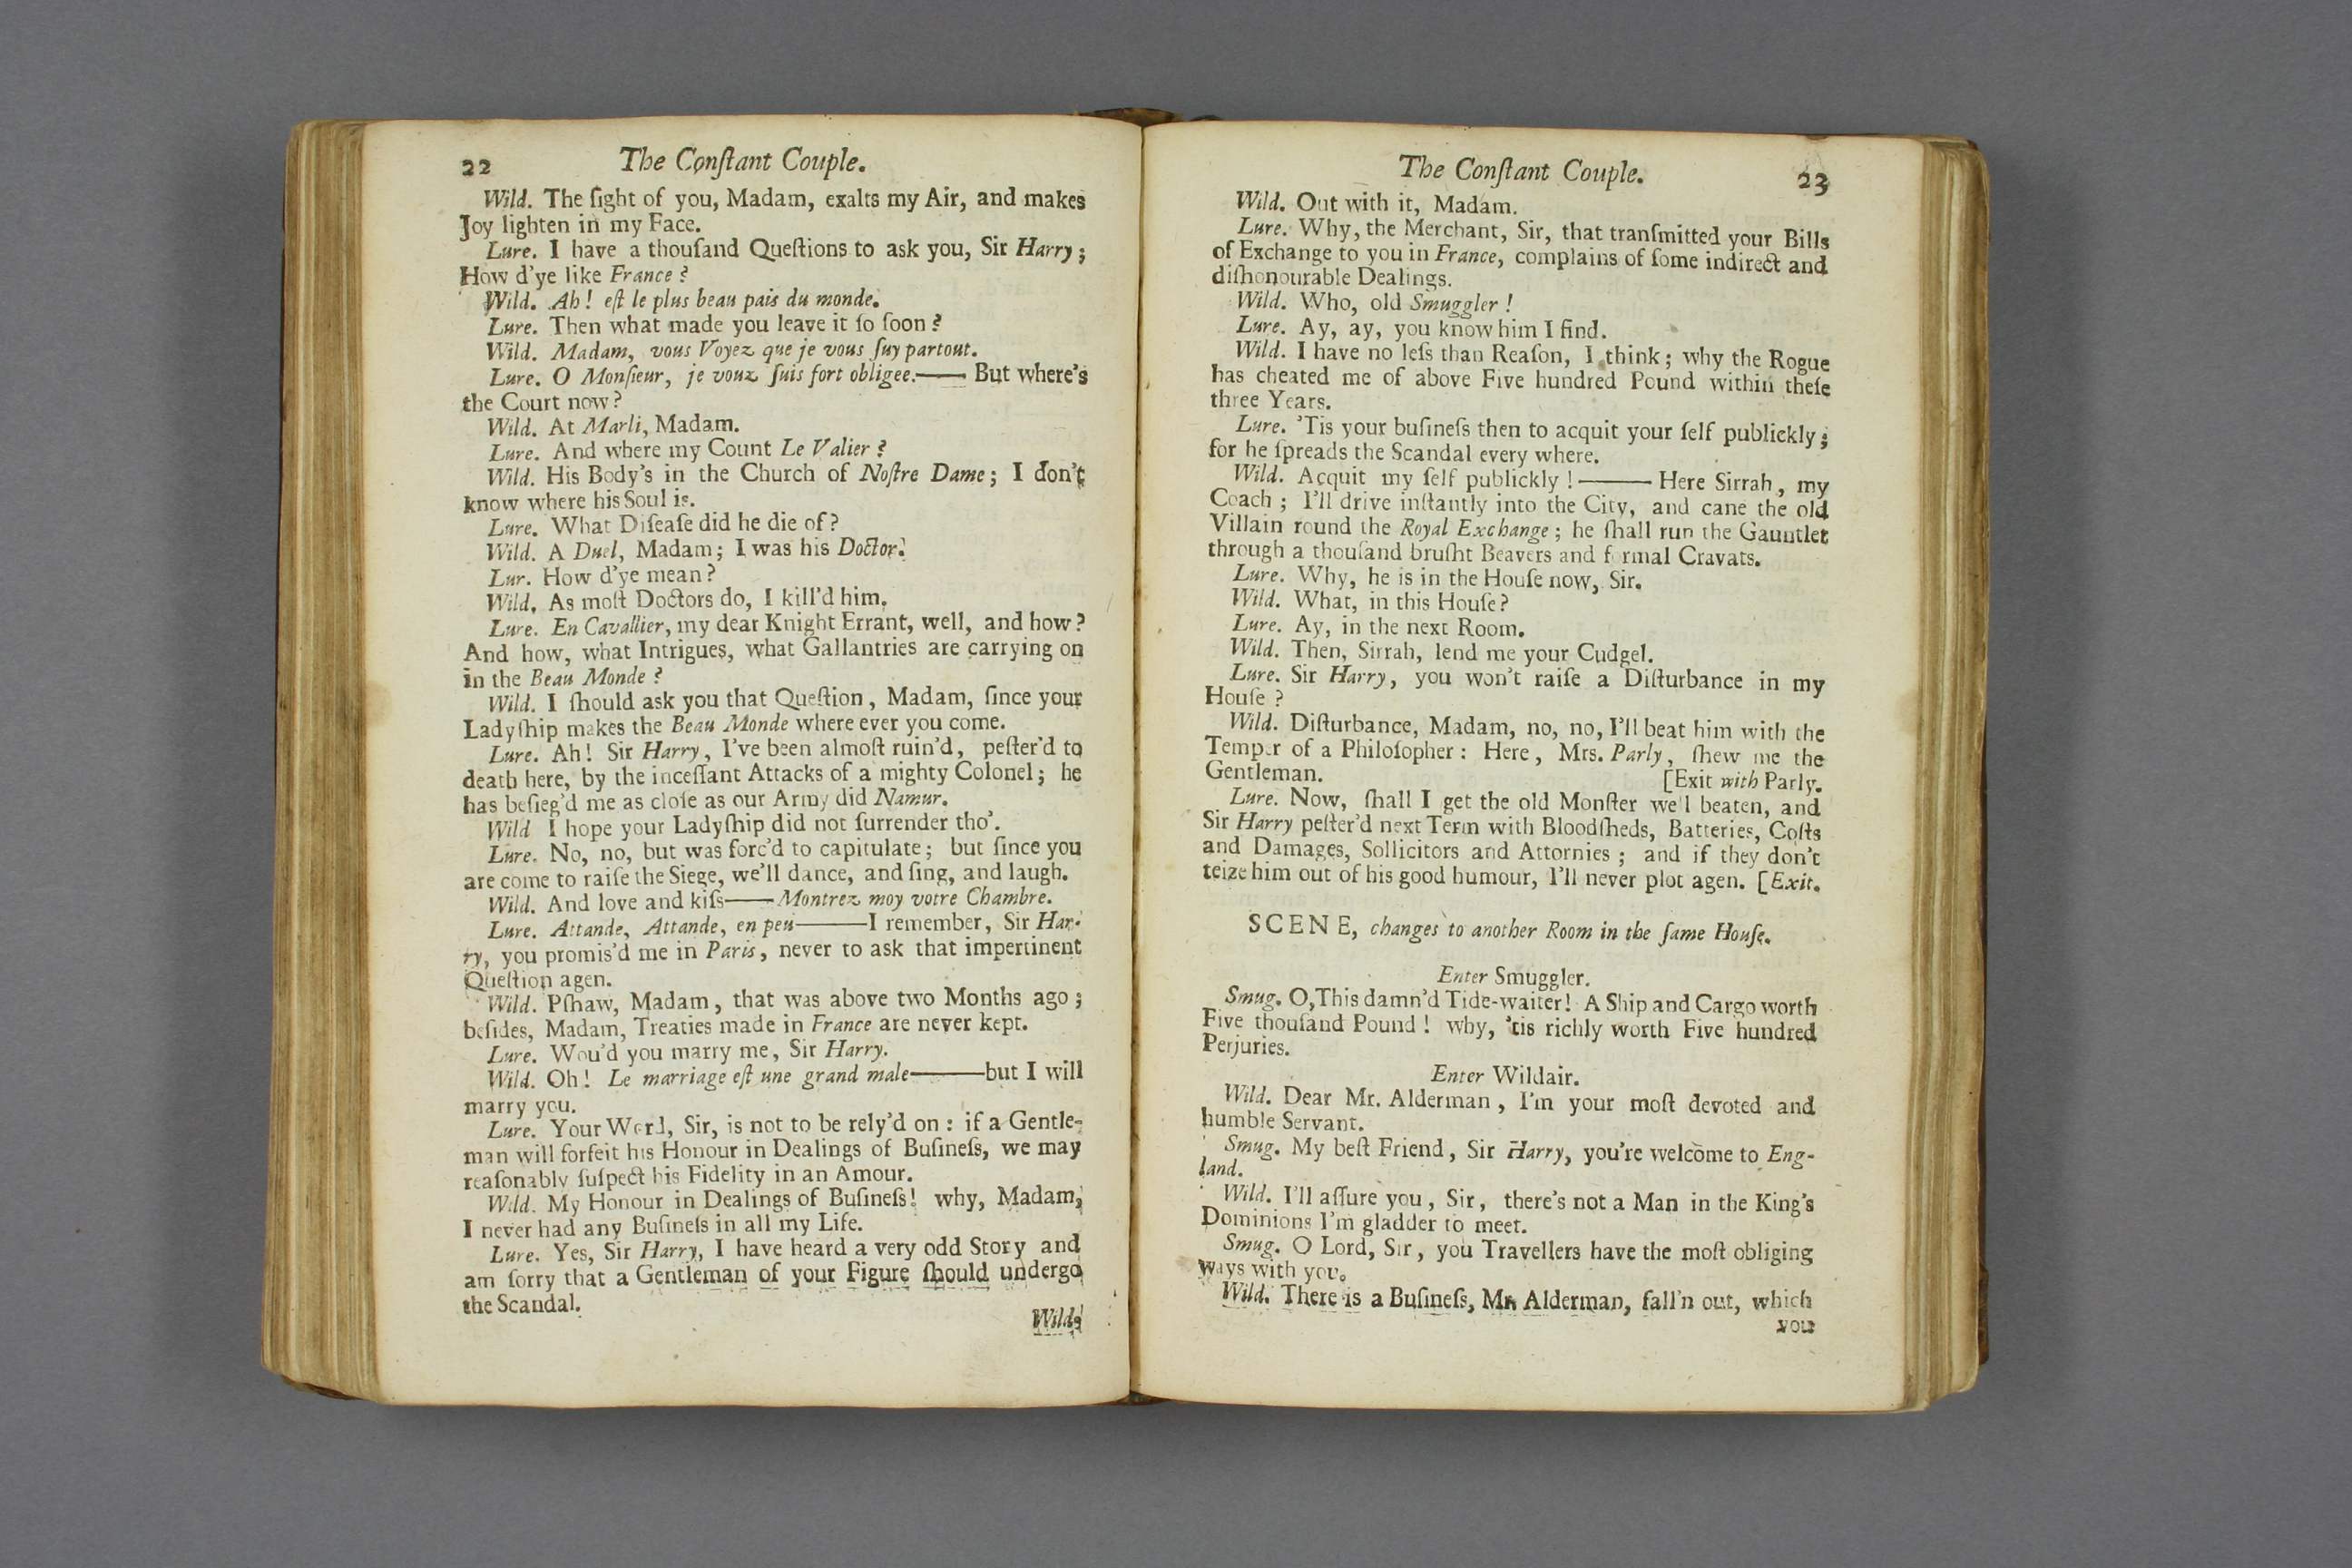 22 The Conſtant Couple.
Wild. The ſight of you, Madam, exalts my Air, and makes
Joy lighten in my Face.
Lure. I have a thouſand Queſtions to ask you, Sir Harry;
How d'ye like France?
Wild. Ah! eſt le plus beau pais du monde.
Lure. Then what made you leave it ſo ſoon?
Wild. Madam, vous Voyez que je vous ſuy partout.
Lure. O Monſieur, je vouz ſuis fort obligee.—— But where's
the Court now?
Wild. At Marli, Madam.
Lure. And where my Count Le Valier?
Wild. His Body's in the Church of Noſtre Dame; I don't
know where his Soul is.
Lure. What Diſeaſe did he die of?
Wild. A Duel, Madam; I was his Doctor.
Lur. How d'ye mean?
Wild. As moſt Doctors do, I kill'd him.
Lure. En Cavallier, my dear Knight Errant, well, and how?
And how, what Intrigues, what Gallantries are carrying on
in the Beau Monde?
Wild. I ſhould ask you that Queſtion, Madam, ſince your
Ladyſhip makes the Beau Monde where ever you come.
Lure. Ah! Sir Harry, I've been almoſt ruin'd, peſter'd to
death here, by the inceſſant Attacks of a mighty Colonel; he
has beſieg'd me as cloſe as our Army did Namur.
Wild I hope your Ladyſhip did not ſurrender tho'.
Lure. No, no, but was forc'd to capitulate; but ſince you
are come to raiſe the Siege, we'll dance, and ſing, and laugh.
Wild. And love and kiſs—— Montrez moy votre Chambre.
Lure. Attande, Attande, en peu———I remember, Sir Har-
ry, you promis'd me in Paris, never to ask that impertinent
Queſtion agen.
Wild. Pſhaw, Madam, that was above two Months ago;
beſides, Madam, Treaties made in France are never kept.
Lure. Wou'd you marry me, Sir Harry.
Wild. Oh! Le marriage eſt une grand male———but I will
marry you.
Lure. Your Word, Sir, is not to be rely'd on: if a Gentle-
man will forfeit his Honour in Dealings of Buſineſs, we may
reaſonably ſuſpect his Fidelity in an Amour.
Wild. My Honour in Dealings of Buſineſs! why, Madam,
I never had any Buſineſs in all my Life.
Lure. Yes, Sir Harry, I have heard a very odd Story and
am ſorry that a Gentleman of your Figure ſhould undergo
the Scandal.
Wild.
The Conſtant Couple. 23
Wild. Out with it, Madam.
Lure. Why, the Merchant, Sir, that tranſmitted your Bills
of Exchange to you in France, complains of ſome indirect and
diſhonourable Dealings.
Wild. Who, old Smuggler!
Lure. Ay, ay, you know him I find.
Wild. I have no leſs than Reaſon, I think; why the Rogue
has cheated me of above Five hundred Pound within theſe
three Years.
Lure. 'Tis your buſineſs then to acquit your ſelf publickly;
for he ſpreads the Scandal every where.
Wild. Acquit my ſelf publickly!——— Here Sirrah, my
Coach; I'll drive inſtantly into the City, and cane the old
Villain round the Royal Exchange; he ſhall run the Gauntlet
through a thouſand bruſht Beavers and formal Cravats.
Lure. Why, he is in the Houſe now, Sir.
Wild. What, in this Houſe?
Lure. Ay, in the next Room.
Wild. Then, Sirrah, lend me your Cudgel.
Lure. Sir Harry, you won't raiſe a Diſturbance in my
Houſe?
Wild. Diſturbance, Madam, no, no, I'll beat him with the
Temper of a Philoſopher: Here, Mrs. Parly, ſhew me the
Gentleman. [Exit with Parly.
Lure. Now, ſhall I get the old Monſter well beaten, and
Sir Harry peſter'd next Term with Bloodſheds, Batteries, Coſts
and Damages, Sollicitors and Attornies; and if they don't
teize him out of his good humour, I'll never plot agen. [Exit.
SCENE, changes to another Room in the ſame Houſe.
Enter Smuggler.
Smug. O, This damn'd Tide-waiter! A Ship and Cargo worth
Five thouſand Pound! why, 'tis richly worth Five hundred
Perjuries.
Enter Wildair.
Wild. Dear Mr. Alderman, I'm your moſt devoted and
humble Servant.
Smug. My beſt Friend, Sir Harry, you're welcome to Eng-
land.
Wild. I'll aſſure you, Sir, there's not a Man in the King's
Dominions I'm gladder to meet.
Smug. O Lord, Sir, you Travellers have the moſt obliging
ways with you.
Wild. There is a Buſineſs, Mr. Alderman, fall'n out, which
you